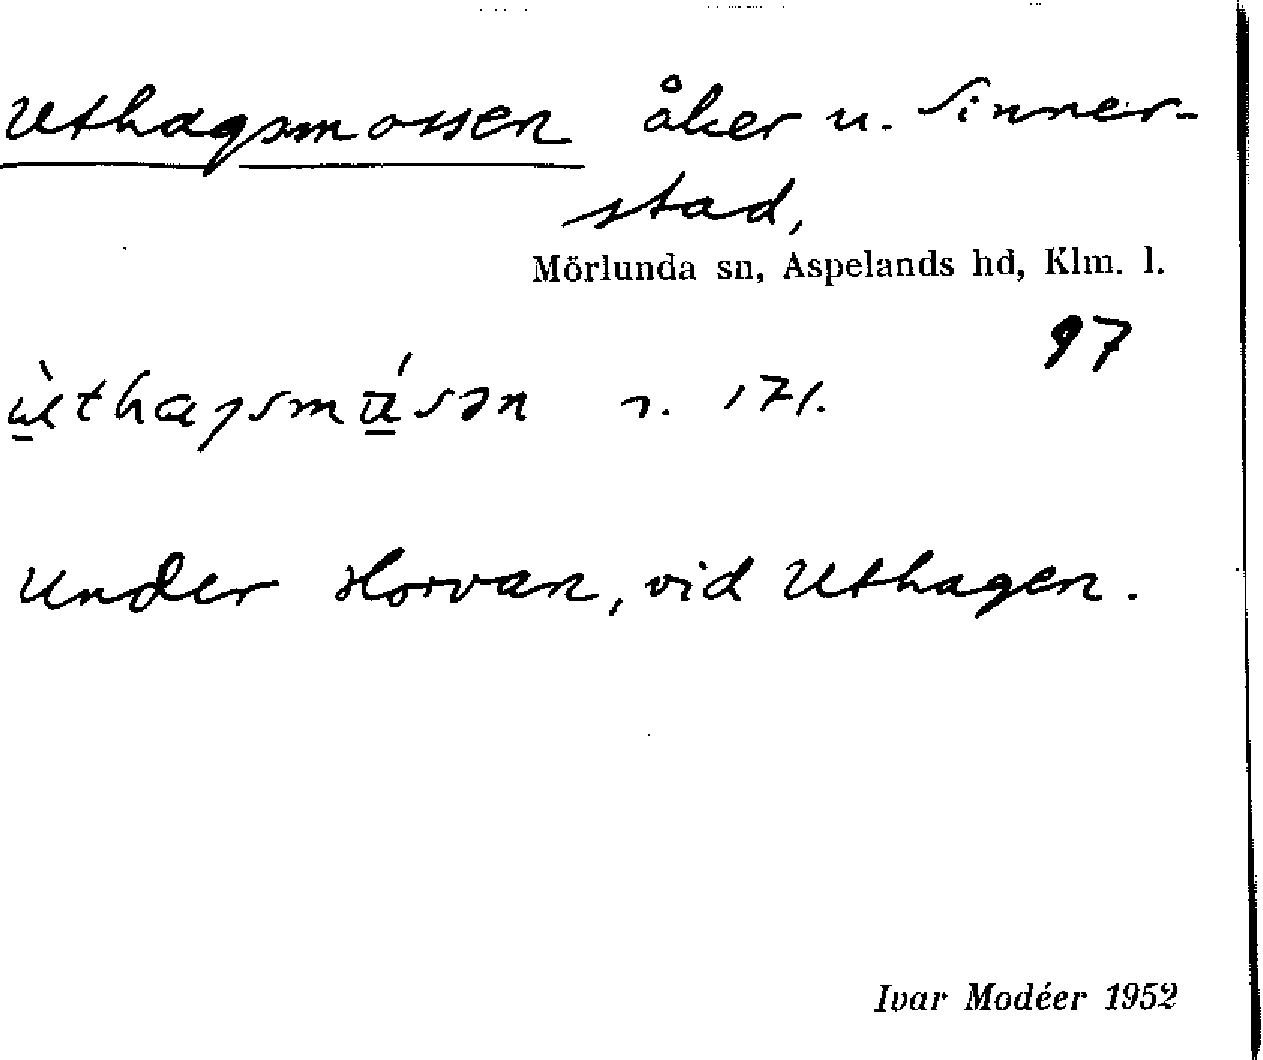 Uthagsmossen åker u. Sinner-
stad,
Mörlunda sn, Aspelands hd, Klm. l.
97
171.
Under Horvan, vid Uthagen.
Ivar Modéer 1952